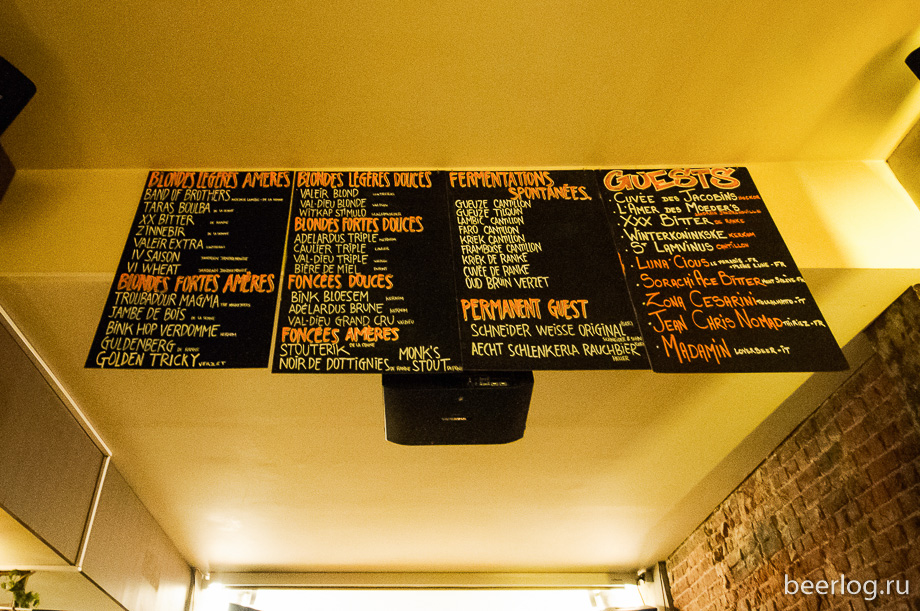 BLONDES LEGERES AMERES
BAND OF BROTHERS
TARAS BOULBA DE LA SENNE
XX BITTER DE RANKE
ZINNEBIR DE LA SENNE
VALEIR EXTRA
IV SAISON
VI WHEAT
BLONDES FORTES AMÈRES
TROUBADOUR MAGMA
JAMBE DE BOIS DE LA SENNE
BINK HOP VERDOMME KERKOM
GULDENBERG DE RANKE
GOLDEN TRICKY VERZET
BLONDES LEGERES DOUCES
VALEIR BLOND
VAL-DIEU BLONDE
WITKAP STIMULO
BLONDES FORTES DOUCES
ADELARDUS TRIPLE KERKOM
CAULIER TRIPLE
VAL-DIEU TRIPLE
BIÈRE DE MIEL
FONCÉES DOUCES
BINK BLOESEM KERKOM
ADÉLARDUS BRUNE KERKOM
VAL-DIEU GRAND CRU VALDIEU
FONCÉES AMÈRES
STOUTERIK DE LA SENNE
NOIR DE DOTTIGNIES DE RANKE
MONK'S
STOUT DUPONT
FERMENTATIONS
SPONTANÉES
GUEUZE CANTILLON
GUEUZE TILQUIN
LAMBIC CANTILLON
FARO CANTILLON
KRIEK CANTILLON
FRAMBOISE CANTILLON
KRIEK DE RANKE
CUVÉE DE RANKE
OUD BRUIN VERZET
PERMANENT GUEST
SCHNEIDER WEISSE ORIGINAL
AECHT SCHLENKERLA RAUCHBIER
GUESTS
· CUVÉE DES JACOBINS
· L'AMER DES MOEDER'S
· XXX BITTER DE RANKE
· WINTERKONINKSKE KERKOM
· ST LAMVINUS CANTILLON
· LUNA'CIOUS
· SORACHI ACE BITTER
· ZONA CESARINI TOCCALMATTO-IT
· JEAN CHRIS NOMAD THIRIEZ-FR
· MADAMIN LOVERBEER-IT
beerlog.ru